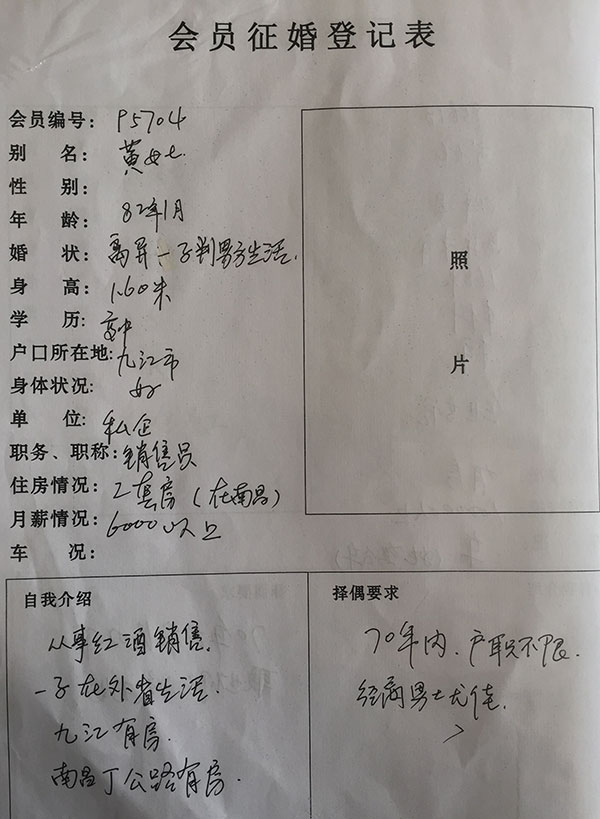 会员征婚登记表
会员编号： P5704
别 名： 黄女士
性 别：
年 龄： 82年1月
婚 状： 离异一子判男方生活.
身 高： 1.60米
学 历： 高中
户口所在地： 九江市
身体状况： 好
单 位： 私企
职务、职称： 销售员
住房情况： 2套房（在南昌）
月薪情况： 6000以上
车 况：
照
片
自我介绍
从事红酒销售.
一子在外省生活.
九江有房.
南昌丁公路有房.
择偶要求
70年内. 户职不限.
经商男士尤佳.